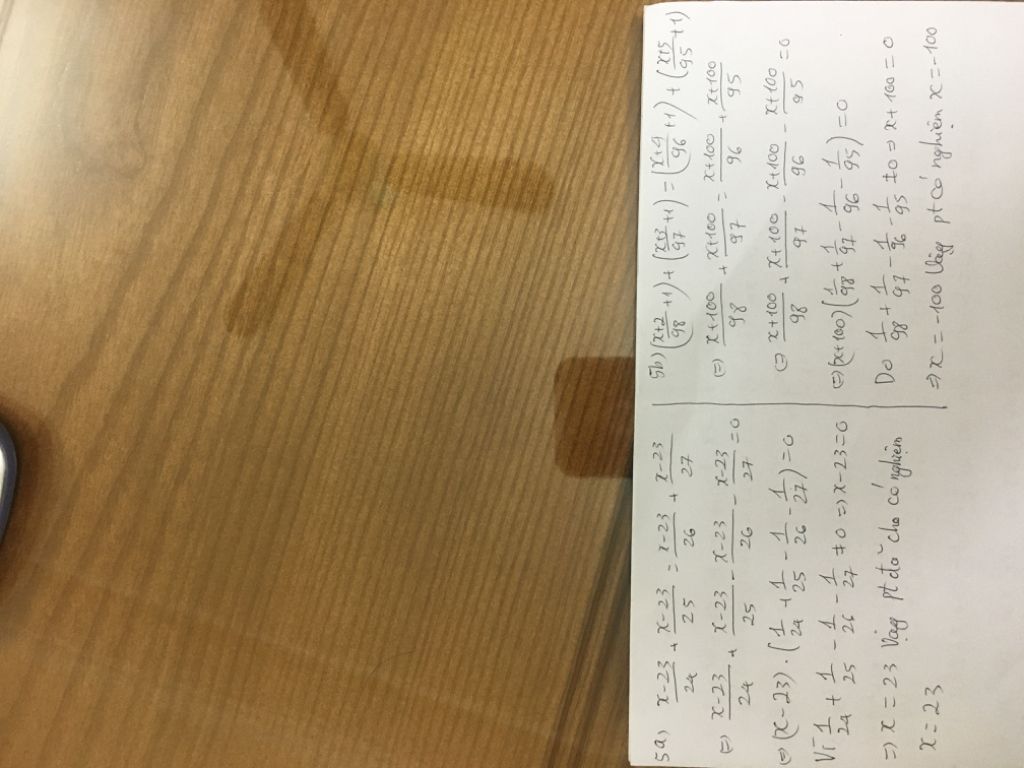 5a) \frac{x-23}{24} + \frac{x-23}{25} = \frac{x-23}{26} + \frac{x-23}{27}
(=) \frac{x-23}{24} + \frac{x-23}{25} - \frac{x-23}{26} - \frac{x-23}{27} = 0
(=) (x-23) \cdot (\frac{1}{24} + \frac{1}{25} - \frac{1}{26} - \frac{1}{27}) = 0
Vì \frac{1}{24} + \frac{1}{25} - \frac{1}{26} - \frac{1}{27} ≠ 0 => x-23=0
=> x = 23 Vậy pt đã cho có nghiệm
x = 23
5b) (\frac{x+2}{98}+1) + (\frac{x+3}{97}+1) = (\frac{x+4}{96}+1) + (\frac{x+5}{95}+1)
(=) \frac{x+100}{98} + \frac{x+100}{97} = \frac{x+100}{96} + \frac{x+100}{95}
(=) \frac{x+100}{98} + \frac{x+100}{97} - \frac{x+100}{96} - \frac{x+100}{95} = 0
(=) (x+100)(\frac{1}{98} + \frac{1}{97} - \frac{1}{96} - \frac{1}{95}) = 0
Do \frac{1}{98} + \frac{1}{97} - \frac{1}{96} - \frac{1}{95} ≠ 0 => x+100 = 0
=> x = -100 Vậy pt có nghiệm x = -100